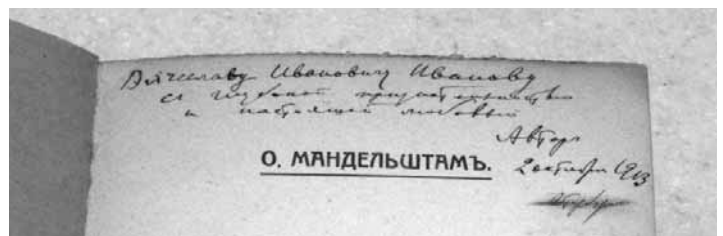 Вячеславу Ивановичу Иванову
съ глубокой признательностью
и настоящей любовью
Авторъ
О. МАНДЕЛЬШТАМЪ.
2 октября 1913